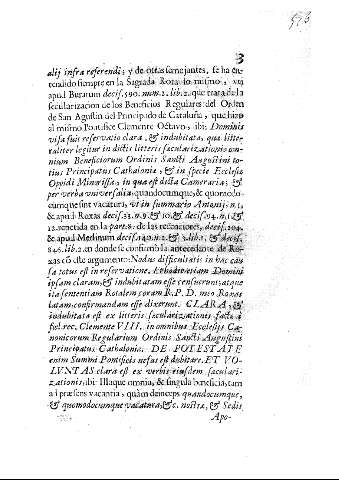 3
alij infra referendi; y de otras semejantes, se ha en-
tendido siempre en la Sagrada Rota lo mismo, vt
apud Buratum decis. 590. num. 2. lib. 2. que trata de la
secularizacion de los Beneficios Regulares del Orden
de San Agustin del Principado de Cataluña, que hizo
el mismo Pontifice Clemente Octavo, ibi: Dominis
visa fuit reservatio clara, & indubitata, qua litte-
raliter legitur in dictis litteris sæcularizationis om-
nium Beneficiorum Ordinis Sancti Augustini to-
tius Principatus Cathaloniæ, & in specie Ecclesiæ
Oppidi Minorissa, in qua est dicta Cameraria; &
per verba vniversalia quandocumque, & quomodo-
cumque sint vacatura, vt in summario Antonij, n. 1,
& apud Roxas decis.
12. repetida en la part. 8. de las recentiores, decis. 104.
& apud Merlinum decis. 140. n. 2. & 3. lib. 1. & decis.
845. lib. 2. en donde se confirmò la antecedente de Ro-
xas cõ este argumento: Nodus difficultatis in hac cau-
sa totus est in reservatione, Domini
ipsam claram, & indubitatam esse censuerunt, atque
ita sententiam Rotalem coram R. P. D. meo Roxas
latam confirmandam esse dixerunt. CLARA, &
indubitata est ex litteris sæcularizationis factæ à
fel. rec. Clemente VIII. in omnibus Ecclesijs Ca-
nonicorum Regularium Ordinis Sancti Augustini
Principatus Cathaloniæ. DE POTESTATE
enim Summi Pontificis nefas est dubitare. ET VO-
LVNTAS clara est ex verbis eiusdem sæculari-
zationis, ibi: Illaque omnia, & singula beneficia, tam
à præsens vacantia, quàm deinceps quandocumque,
& quomodocumque vacatura, &c. nostræ, & Sedis
Apo-